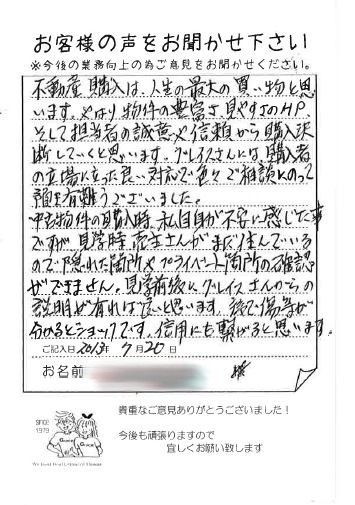 お客様の声をお聞かせ下さい
※今後の業務向上の為ご意見をお聞かせください。
不動産購入は、人生の最大の買い物と思
います。やはり物件の豊富さ、見やすさのHP
そして担当者の誠意や信頼から購入決
断していくと思います。グレイスさんには、購入者
の立場に立った良い対応で色々ご相談にのって
頂き有難うございました。
中古物件の購入時、私自身が不安に感じた事
ですが、見学時、売主さんがまだ住んでいる
ので隠れた箇所やプライベート箇所の確認
ができません。見学前後にグレイスさんからの
説明が有れば良いと思います。後で傷等が
分かるとショックです。信用にも繋がると思います。
ご記入日 2013年 7月20日
お名前 様
貴重なご意見ありがとうございました!
今後も頑張りますので
宜しくお願い致します
SINCE
1979